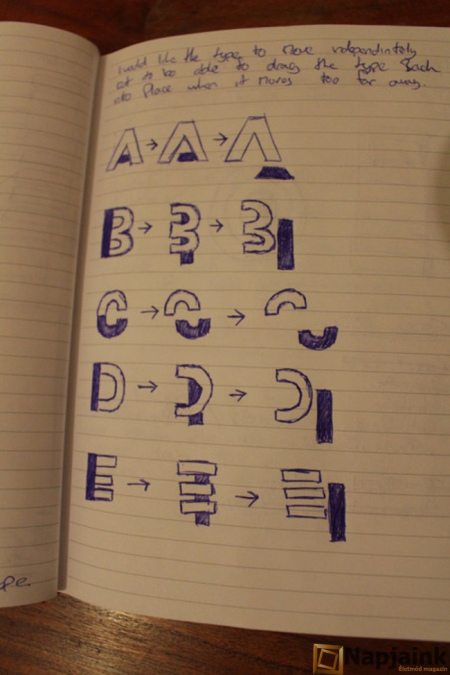 I would like the types to move independintely
but to be able to drag the type Back
into Place when it moves too far away.
A → A → A
B → B → B
C → C → C
D → D → D
E → E → E
Napjaink
Életmód magazin